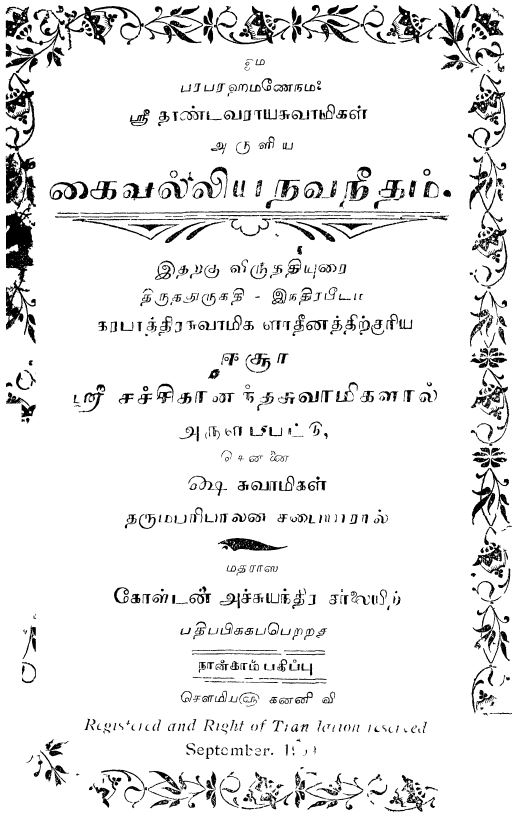 ஓம
பரபரஹமணேநமஃ
ஸ்ரீ தாண்டவராயசுவாமிகள்
அ ரு ளி ய
கைவல்லியநவநீதம்.
இதறகு விருநதியுரை
திருததுருகதி - இநதிரபீடம
கரபாத்திரசுவாமிக ளாதீனத்திற்குரிய
ஈ சூ ா
ஸ்ரீ சச்சிதானந்தசுவாமிகளால்
அருளபபட்டு,
சென்னை
ஷை சுவாமிகள்
தருமபரிபாலன சபையாரால்
மதராஸ
கோல்டன் அச்சுயந்திர சாலையிற்
பதிபபிககபபெறறது
நான்காம் பதிப்பு
சௌமியளு கனனி வி
Registered and Right of Translation reserved
September.